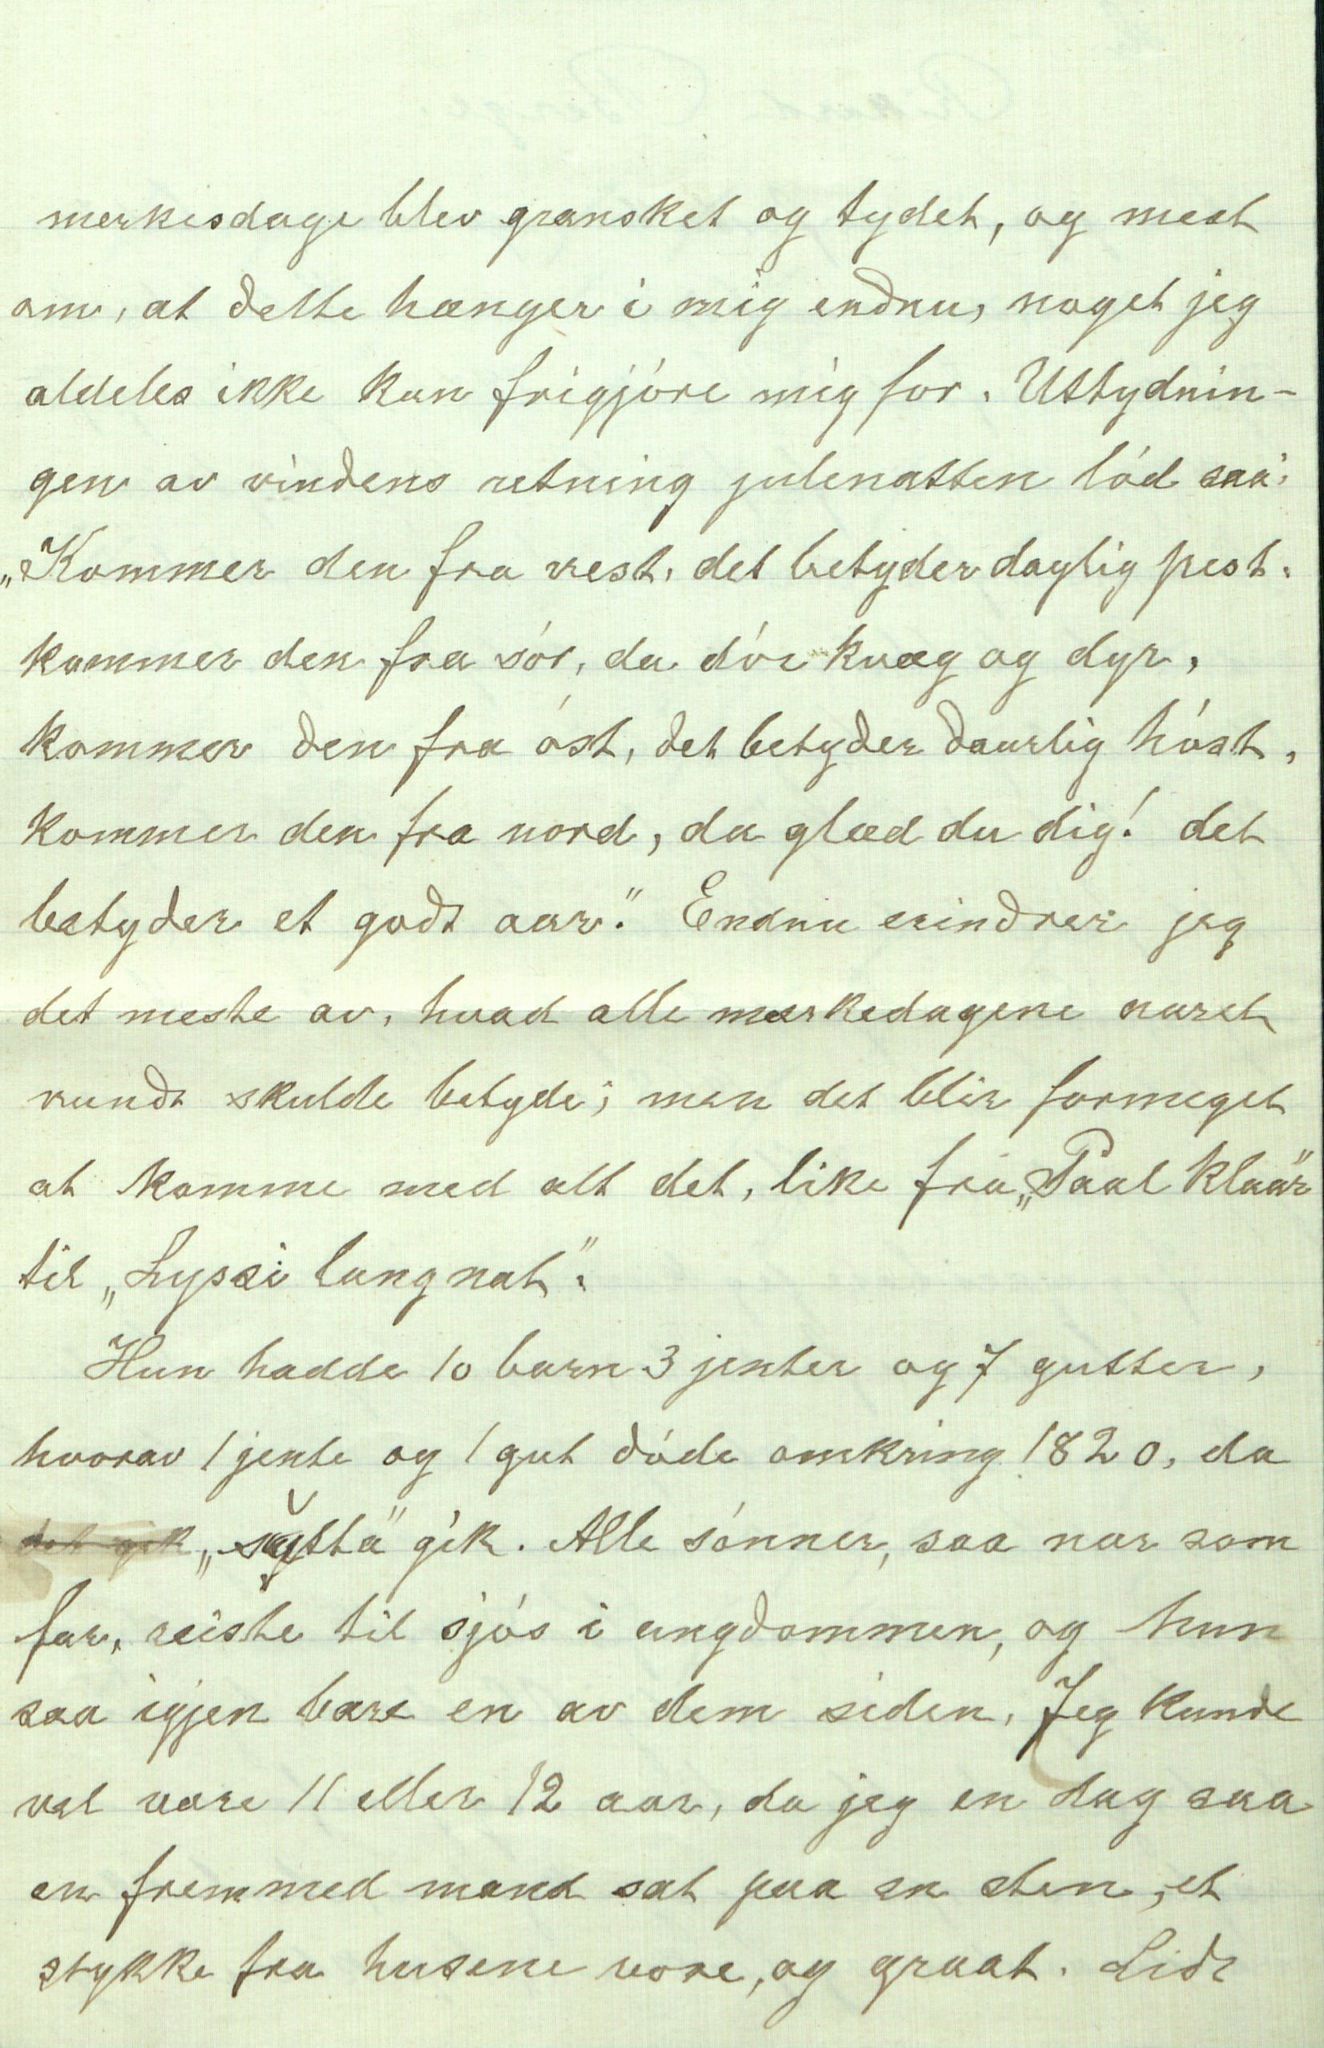 merkesdage blev gransket og tydet, og mest
om, at dette hænger i mig endnu, noget jeg
aldeles ikke kan frigjóre mig for. Uttydnin-
gen av vindens retning julenatten lód saa:
„Kommer den fra vest, det betyder daglig pest.
kommer den fra sór, da dór kvæg og dyr,
kommer den fra óst, det betyder daarlig hóst,
kommer den fra nord, da glæd du dig! det
betyder et godt aar." Endnu erindrer jeg
det meste av, hvad alle merkedagene aaret
rundt skulde betyde; men det blir formeget
at komme med alt det, like fra „Paal klaar"
til „Lyssi langnat".
Hun hadde 10 barn 3 jenter og 7 gutter,
hvorav 1 jente og 1 gut dóde omkring 1820, da
det gik „sytta" gik. Alle sónner, saa nær som
far, reiste til sjós i ungdommen, og hun
saa igjen bare en av dem siden. Jeg kunde
vel være 11 eller 12 aar, da jeg en dag saa
en fremmed mand sat paa en sten, et
stykke fra husene vore, og graat. Lidt